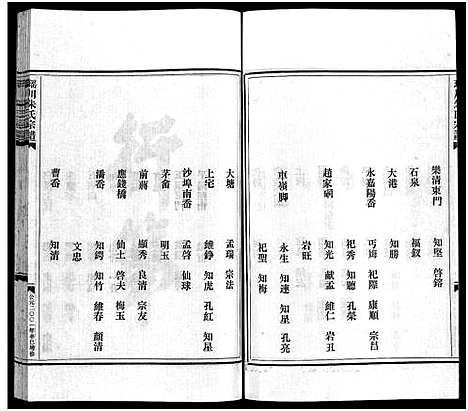 樂清東門 知堅 啓鎔
石泉 福釵
大港 知勝
永嘉陽岙 丐娒 祀際 康順 宗昌
祀秀 知聽 孔榮
趙家硐 知光 獻孟 維仁 岩丑
岩旺
車嶺脚 永生 知連 知星 孔亮
祀聖 知梅
大塘 孟瑞 宗法
上宅 維錚 知虎 孔紅 知星
沙埠南岙 孟啓 仙球
茅畬 明玉
前蔣 顯秀 良清 宗友
應錢橋 仙土 啓夫 梅玉
潘岙 知鍔 知竹 維春 顏清
文忠
曹岙 知清
川朱氏宗譜
公元二〇〇一年辛巳增修